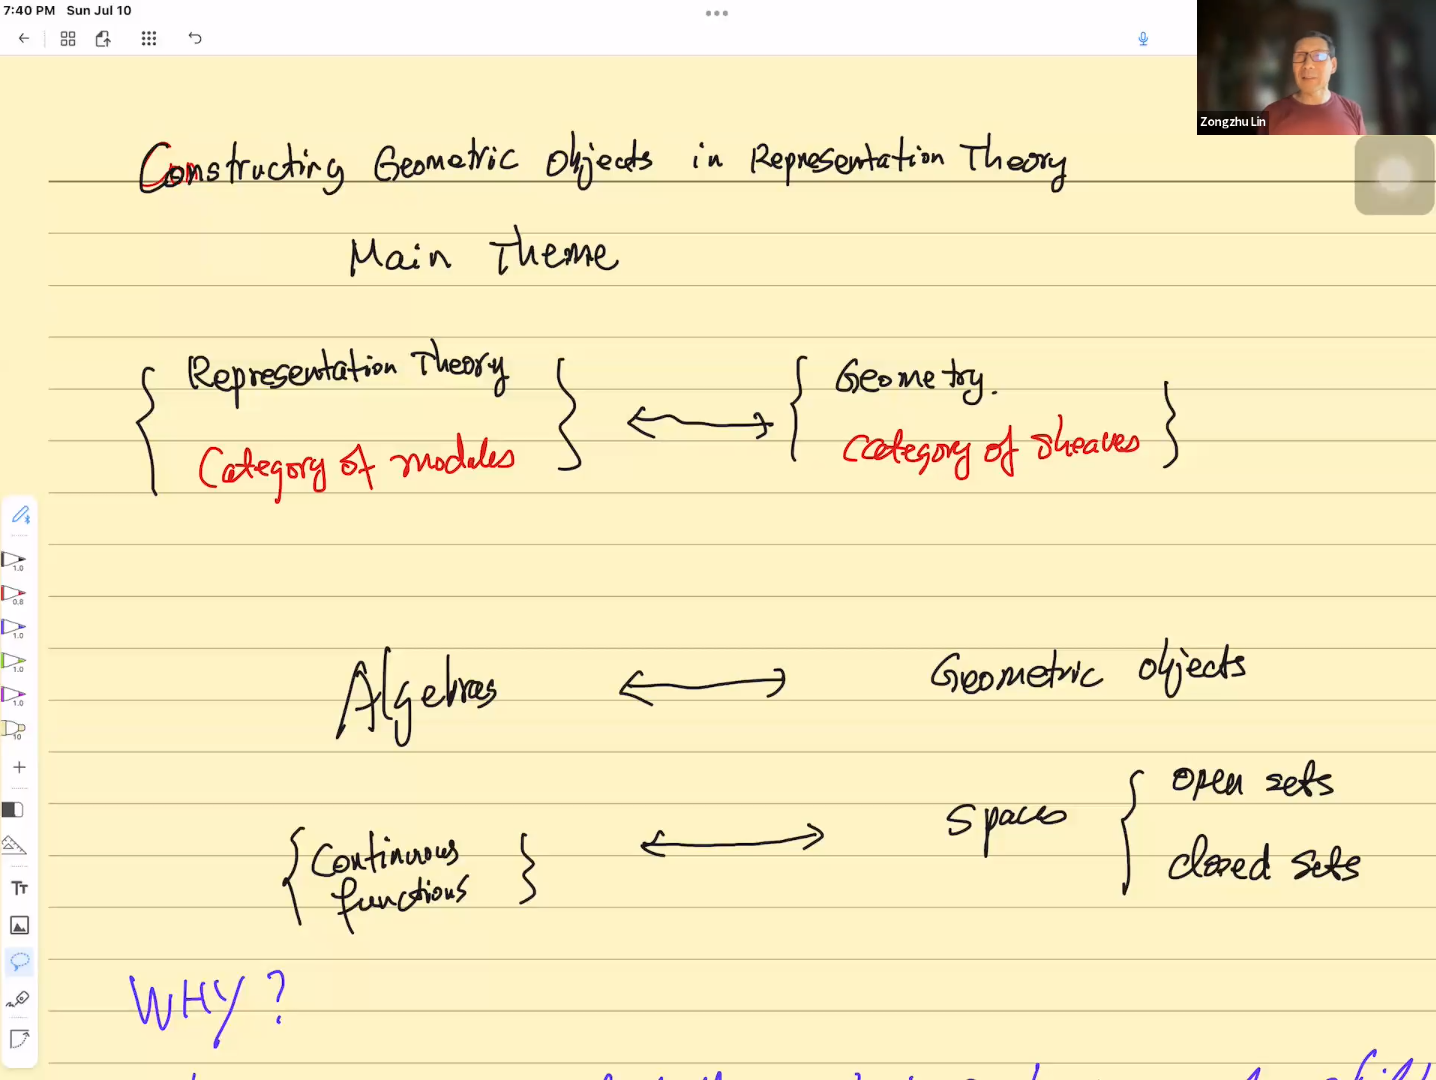 7:40 PM Sun Jul 10
Zongzhu Lin
Constructing Geometric Objects in Representation Theory
Main Theme
{ Representation Theory } ↔ { Geometry. }
Category of modules category of sheaves
Algebras ↔ Geometric objects
{ Continuous functions } ↔ Spaces { open sets
closed sets
WHY?
1.0
0.8
1.0
1.0
1.0
10
TT